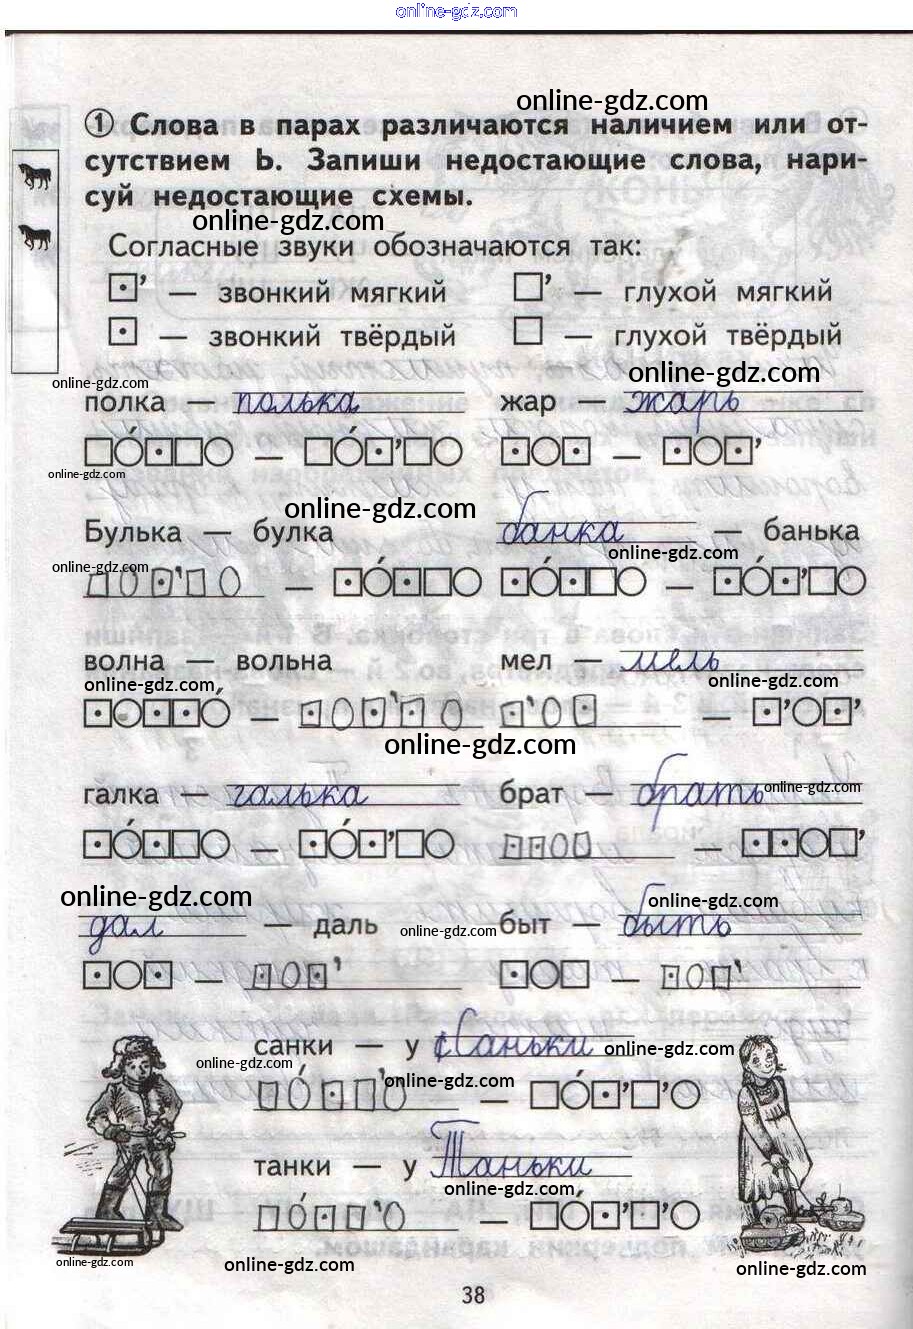 online-gdz.com
online-gdz.com
① Слова в парах различаются наличием или от-
сутствием Ь. Запиши недостающие слова, нари-
суй недостающие схемы.
online-gdz.com
Согласные звуки обозначаются так:
— звонкий мягкий — глухой мягкий
— звонкий твёрдый — глухой твёрдый
online-gdz.com online-gdz.com
полка — полька жар — жарь
online-gdz.com
online-gdz.com
Булька — булка банка — банька
online-gdz.com online-gdz.com
волна — вольна мел — мель
online-gdz.com online-gdz.com
online-gdz.com
галка — галька брат — брать online-gdz.com
online-gdz.com online-gdz.com
дал — даль online-gdz.com быт — быть
санки — у Саньки online-gdz.com
online-gdz.com
online-gdz.com
танки — у Таньки
online-gdz.com
online-gdz.com online-gdz.com online-gdz.com
38